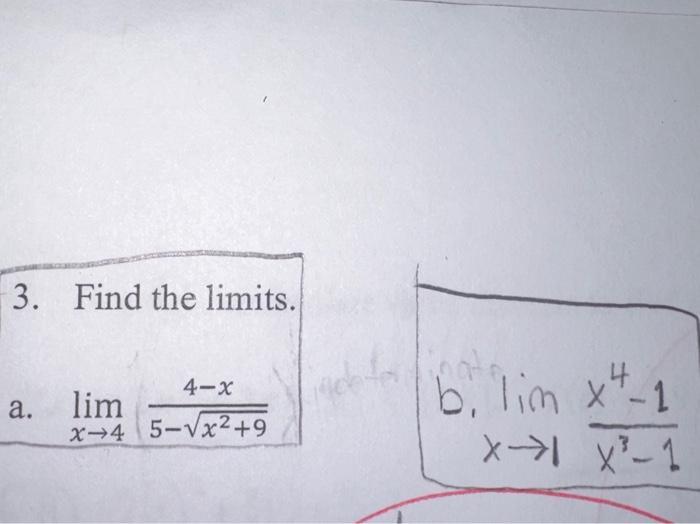 3. Find the limits.
a. lim x→4 (4−x)/(5−√(x²+9))
b. lim x→1 (x⁴−1)/(x³−1)